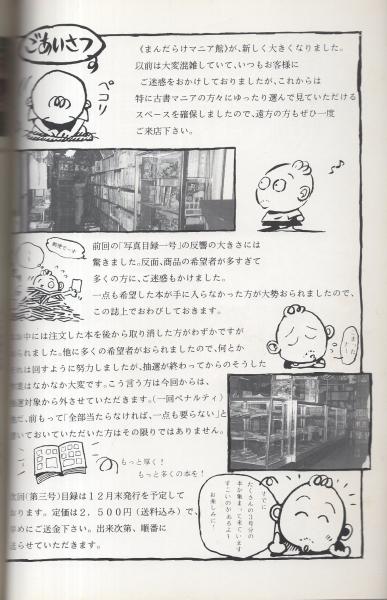 ごあいさつ
ペコリ
《まんだらけマニア館》が、新しく大きくなりました。
以前は大変混雑していて、いつもお客様に
ご迷惑をおかけしておりましたが、これからは
特に古書マニアの方々にゆったり選んで見ていただける
スペースを確保しましたので、遠方の方もぜひ一度
ご来店下さい。
前回の「写真目録一号」の反響の大きさには
驚きました。反面、商品の希望者が多すぎて
多くの方に、ご迷惑もかけました。
一点も希望した本が手に入らなかった方が大勢おられましたので、
この誌上でおわびしておきます。
中には注文した本を後から取り消した方がわずかですが
られました。他に多くの希望者がおられましたので、何とか
は回すように努力しましたが、抽選が終わってからのそうした
業はなかなか大変です。こう言う方は今回からは、
選対象から外させていただきます。（一回ペナルティ）
、前もって「全部当たらなければ、一点も要らない」と
書いておいていただいた方はその限りではありません。
もっと厚く！
もっと多くの本を！
次回（第三号）目録は１２月末発行を予定して
おります。定価は２，５００円（送料込み）で、
早めにご送金下さい。出来次第、順番に
送らせていただきます。
すでに
たくさんの3号分の
本が集まって来ています
すごいのがあるよ〜
お楽しみに！